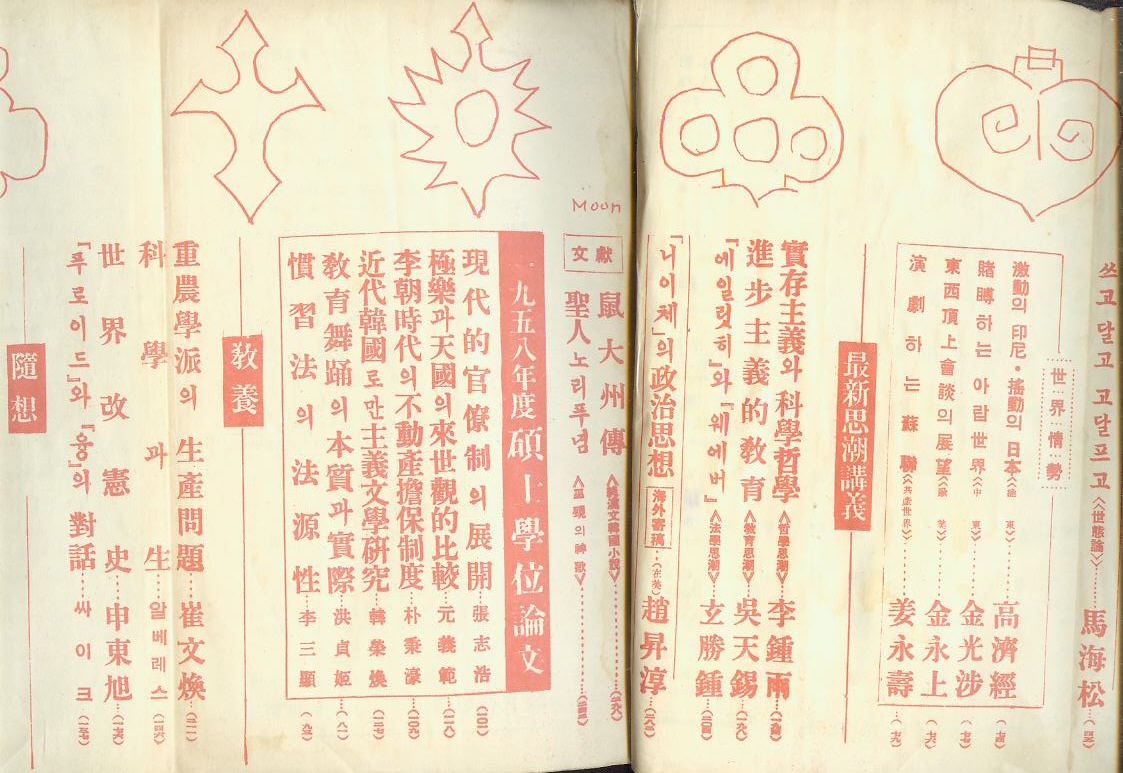 쓰고 달고 고달프고 <世態論> 馬海松
世界情勢
激動의 印尼·搖動의 日本 高濟經
賭博하는 아랍世界 金光涉
東西頂上會談의 展望 金永上
演劇하는 蘇聯 <共產世界> 姜永壽
最新思潮講義
實存主義와 科學哲學 <哲學思潮> 李鍾雨
進步主義的 敎育 <敎育思潮> 吳天錫
『에일릿히』와 『웨에버』 <法學思潮> 玄勝鍾
「니이체」의 政治思想 海外寄稿 (在美) 趙昇淳
Moon
文獻
鼠大州傳 <漢文韓國小說>
聖人노리푸념 <巫覡의 神歌>
一九五八年度 碩士學位論文
現代的官僚制의 展開 張志浩 (一〇一)
極樂과 天國의 來世觀的比較 元義範
李朝時代의 不動產擔保制度 朴秉濠
近代韓國로만主義文學硏究 韓榮煥
敎育舞踊의 本質과 實際 洪貞姬
慣習法의 法源性 李三顯
敎養
重農學派의 生產問題 崔文煥
科學과 生 알베레스
世界改憲史 申東旭
『푸로이드』와 『융』의 對話 싸이크
隨想